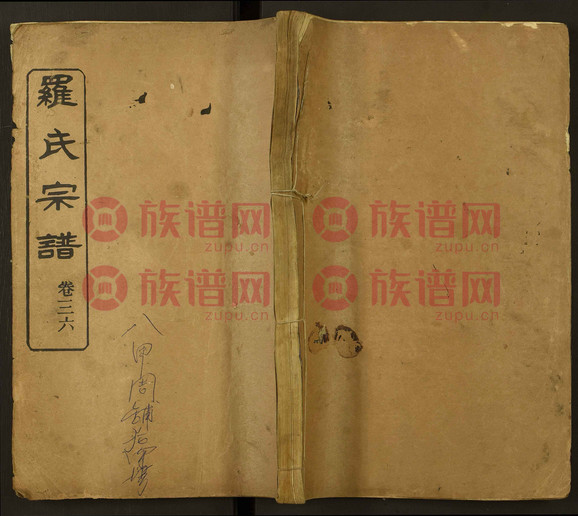 羅氏宗譜
卷三六
八甲周铺
族谱网
zupu.cn
族谱网
zupu.cn
族谱网
zupu.cn
族谱网
zupu.cn